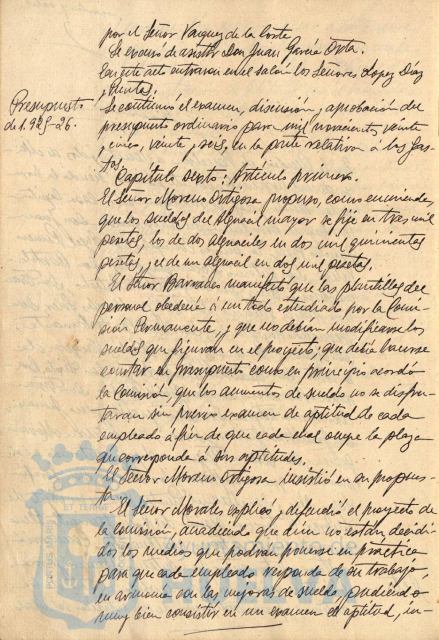 por el Señor Vazquez de la Corte.
Se excusó de asistir Don Juan García Orta.
En este acto entraron en el salón los Señores Lopez Díaz
y Punta.
Presupuesto
de 1.925-26.
Se continuó el examen, discusión y aprobación del
presupuesto ordinario para mil novecientos veinte
y cinco, veinte y seis, en la parte relativa á los Gas-
tos.
Capítulo sexto; Artículo primero.
El Señor Moreno Ortigosa propuso, como enmienda,
que los sueldos del Alguacil mayor se fije en tres mil
pesetas, los de dos Alguaciles en dos mil quinientas
pesetas, y el de un Alguacil en dos mil pesetas.
El Señor manifestó que las plantillas del
personal obedecía á un todo estudiado por la Comi-
sión Permanente, y que no debían modificarse los
sueldos que figuran en el proyecto; que debía hacerse
constar en Presupuesto como en principio acordó
la Comisión, que los aumentos de sueldo no se disfru-
taran sin previo examen de aptitud de cada
empleado á fin de que cada cual ocupe la plaza
que corresponda á sus aptitudes.
El Señor Moreno Ortigosa insistió en su propues-
ta.
El Señor Morales explicó y defendió el proyecto de
la Comisión, añadiendo que aún no están decidi-
dos los medios que podrán ponerse en práctica
para que cada empleado responda de su trabajo,
en armonía con las mejoras de sueldo, pudiendo
muy bien consistir en un examen de aptitud, in-
PORTUS MARIS
ET TERRAE